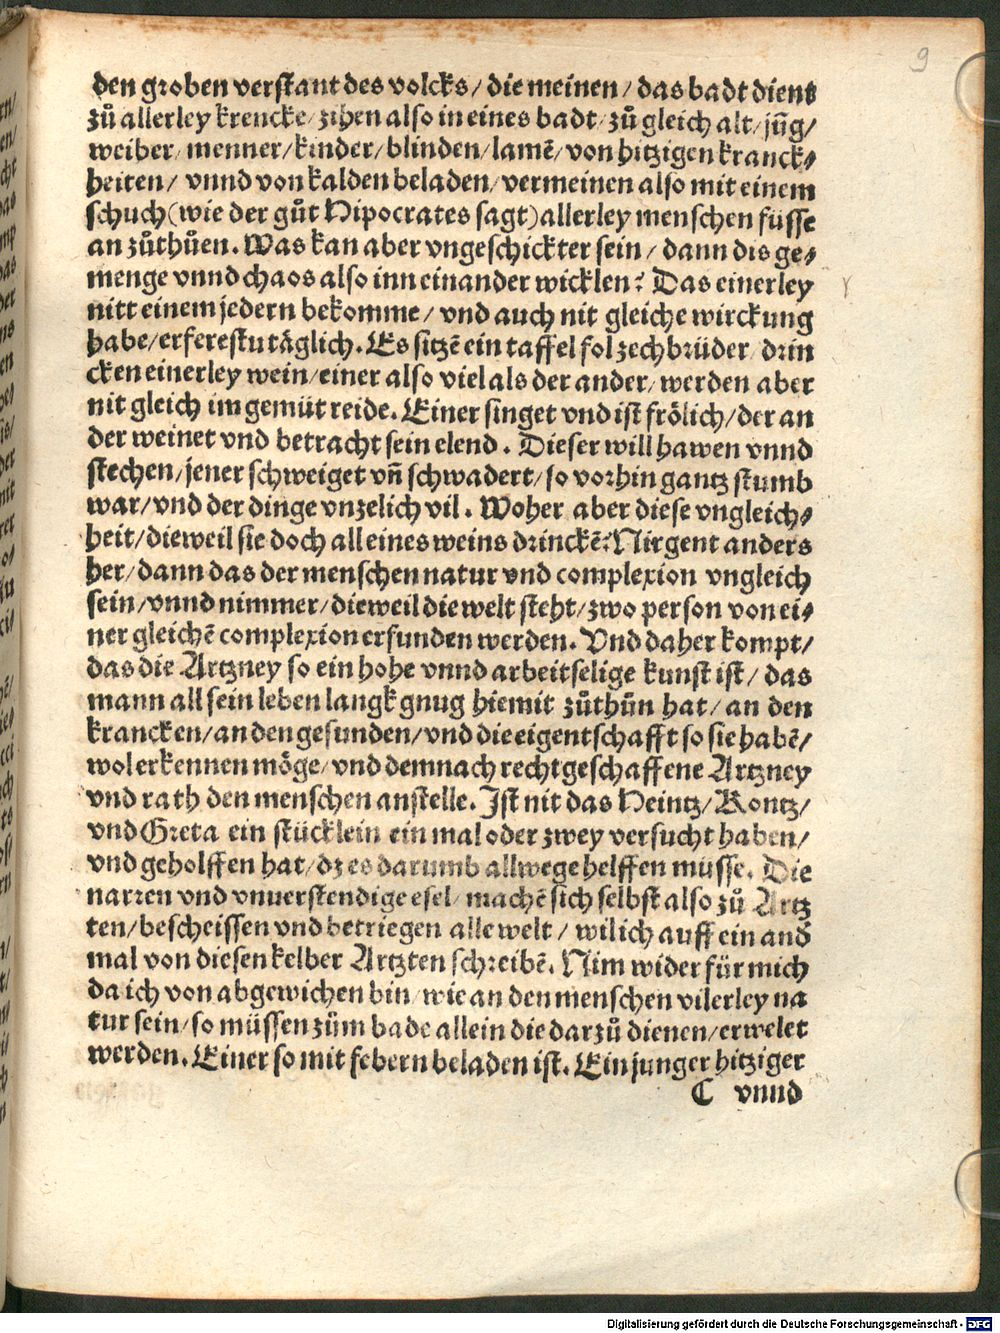 9
den groben verstant des volcks / die meinen / das badt dient
zů allerley krencke / zihen also in eines badt / zů gleich alt / jũg /
weiber / menner / kinder / blinden / lamē / von hitzigen kranck⸗
heiten / vnnd von kalden beladen / vermeinen also mit einem
schuch (wie der gůt Hipocrates sagt) allerley menschen füsse
an zůthůen. Was kan aber vngeschickter sein / dann dis ge⸗
menge vnnd chaos also inn einander wicklen? Das einerley
nitt einem jedern bekomme / vnd auch nit gleiche wirckung
habe / erferestu täglich. Es sitzē ein taffel fol zechbrüder / drin
cken einerley wein / einer also viel als der ander / werden aber
nit gleich im gemüt reide. Einer singet vnd ist frölich / der an
der weinet vnd betracht sein elend. Dieser will hawen vnnd
stechen / jener schweiget vñ schwadert / so vorhin gantz stumb
war / vnd der dinge vnzelich vil. Woher aber diese vngleich⸗
heit / dieweil sie doch all eines weins drinckē? Nirgent anders
her / dann das der menschen natur vnd complexion vngleich
sein / vnnd nimmer / dieweil die welt steht / zwo person von ei⸗
ner gleichē complexion erfunden werden. Vnd daher kompt /
das die Artzney so ein hohe vnnd arbeitselige kunst ist / das
mann all sein leben langk gnug hiemit zůthůn hat / an den
krancken / an den gesunden / vnd die eigentschafft so sie habē /
wol erkennen möge / vnd demnach rechtgeschaffene Artzney
vnd rath den menschen anstelle. Ist nit das Heintz / Kontz /
vnd Greta ein stücklein ein mal oder zwey versucht haben /
vnd geholffen hat / dz es darumb allwege helffen müsse. Die
narren vnd vnuerstendige esel / machē sich selbst also zů Artz
ten / bescheissen vnd betriegen alle welt / wil ich auff ein and̄
mal von diesen kelber Artzten schreibē. Nim wider für mich
da ich von abgewichen bin / wie an den menschen vilerley na
tur sein / so müssen zům bade allein die darzů dienen / erwelet
werden. Einer so mit febern beladen ist. Ein junger hitziger
C vnnd
Digitalisierung gefördert durch die Deutsche Forschungsgemeinschaft - DFG